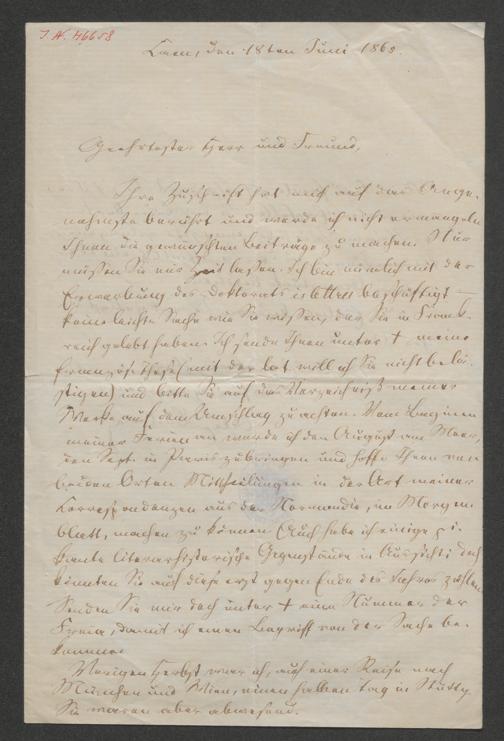 J. N. 46658
Caen, den 18ten Juni 1863.
Geehrtester Herr und Freund,
Ihre Zuschrift hat mich auf das Ange-
nehmste berührt und werde ich nicht ermangeln
Ihnen die gewünschten Beiträge zu machen. Nur
müssen Sie mir Zeit lassen. Ich bin nämlich mit der
Erwerbung des doktorats ès lettres beschäftigt –
keine leichte Sache wie Sie wissen, der Sie in Frank-
reich gelebt haben. Ich sende Ihnen unter + meine
französ. thèse (mit der lat. will ich Sie nicht belä-
stigen) und bitte Sie auf das Verzeichniß meiner
Werke auf dem Umschlag zu achten. Vom Beginnen
meiner Ferien an werde ich den August am Meer,
den Sept. in Paris zubringen und hoffe Ihnen von
beiden Orten Mittheilungen in der Art meiner
Korrespondenzen aus der Normandie, im Morgen-
blatt, machen zu können. Auch habe ich einige pi-
kante literarhistorische Gegenstände in Aussicht; doch
könnten Sie auf diese erst gegen Ende des Jahres zählen
Senden Sie mir doch unter + eine Nummer der
Freia, damit ich einen Begriff von der Sache be-
komme.
Vorigen Herbst war ich, auf einer Reise nach
München und Wien, einen halben Tag in Stuttg.
Sie waren aber abwesend.